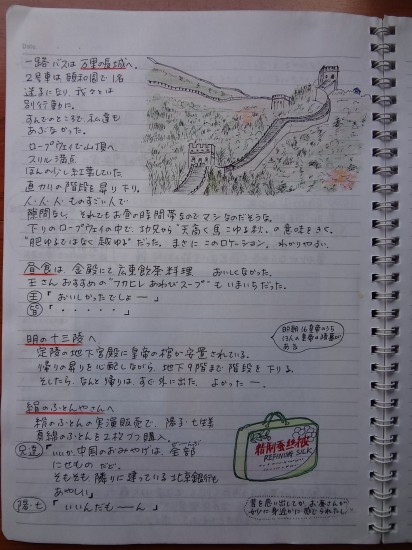 一路バスは万里の長城へ。
2号車は頤和園で1名
迷子になり、我々とは
別行動に。
すんでのところで私達も
あぶなかった。
ロープウェイで山頂へ
スリル満点
ほんの少し紅葉していた
直カりの階段を昇り下り。
人・人・人 ものすごい人で
隙間なし。それでもお昼の時間帯なのでマシなのだそうな。
下りのロープウェイの中で、功兄から"天高く馬こゆる秋"の意味をきく。
"肥ゆるではなく越ゆる"だった。まさにこのロケーション。わかりやすい。
昼食は、金殿にて広東飲茶料理 おいしくなかった。
王さんおすすめの"フカヒレあわびスープ"もいまいちだった。
王「おいしかったでしょー」
皆「・・・・・」
明の十三陵へ
明朝16皇帝のうち
13人の皇帝の陵墓が
ある
定陵の地下宮殿に皇帝の棺が安置されている。
帰りの昇りを心配しながら、地下9階まで階段を下る。
そしたら、なんと帰りは、すぐ外に出た。よかったー。
絹のふとんやさんへ
絹のふとんの実演販売で、陽子・七生
真綿のふとんを2枚づつ購入。
兄達「いいか、中国のおみやげは、全部
にせものだぞ。
そもそも隣りに建っている北京銀行も
あやしい」
陽・七「いいんだもーん」
REFINING SILK
昔を思い出してか、お母さんが